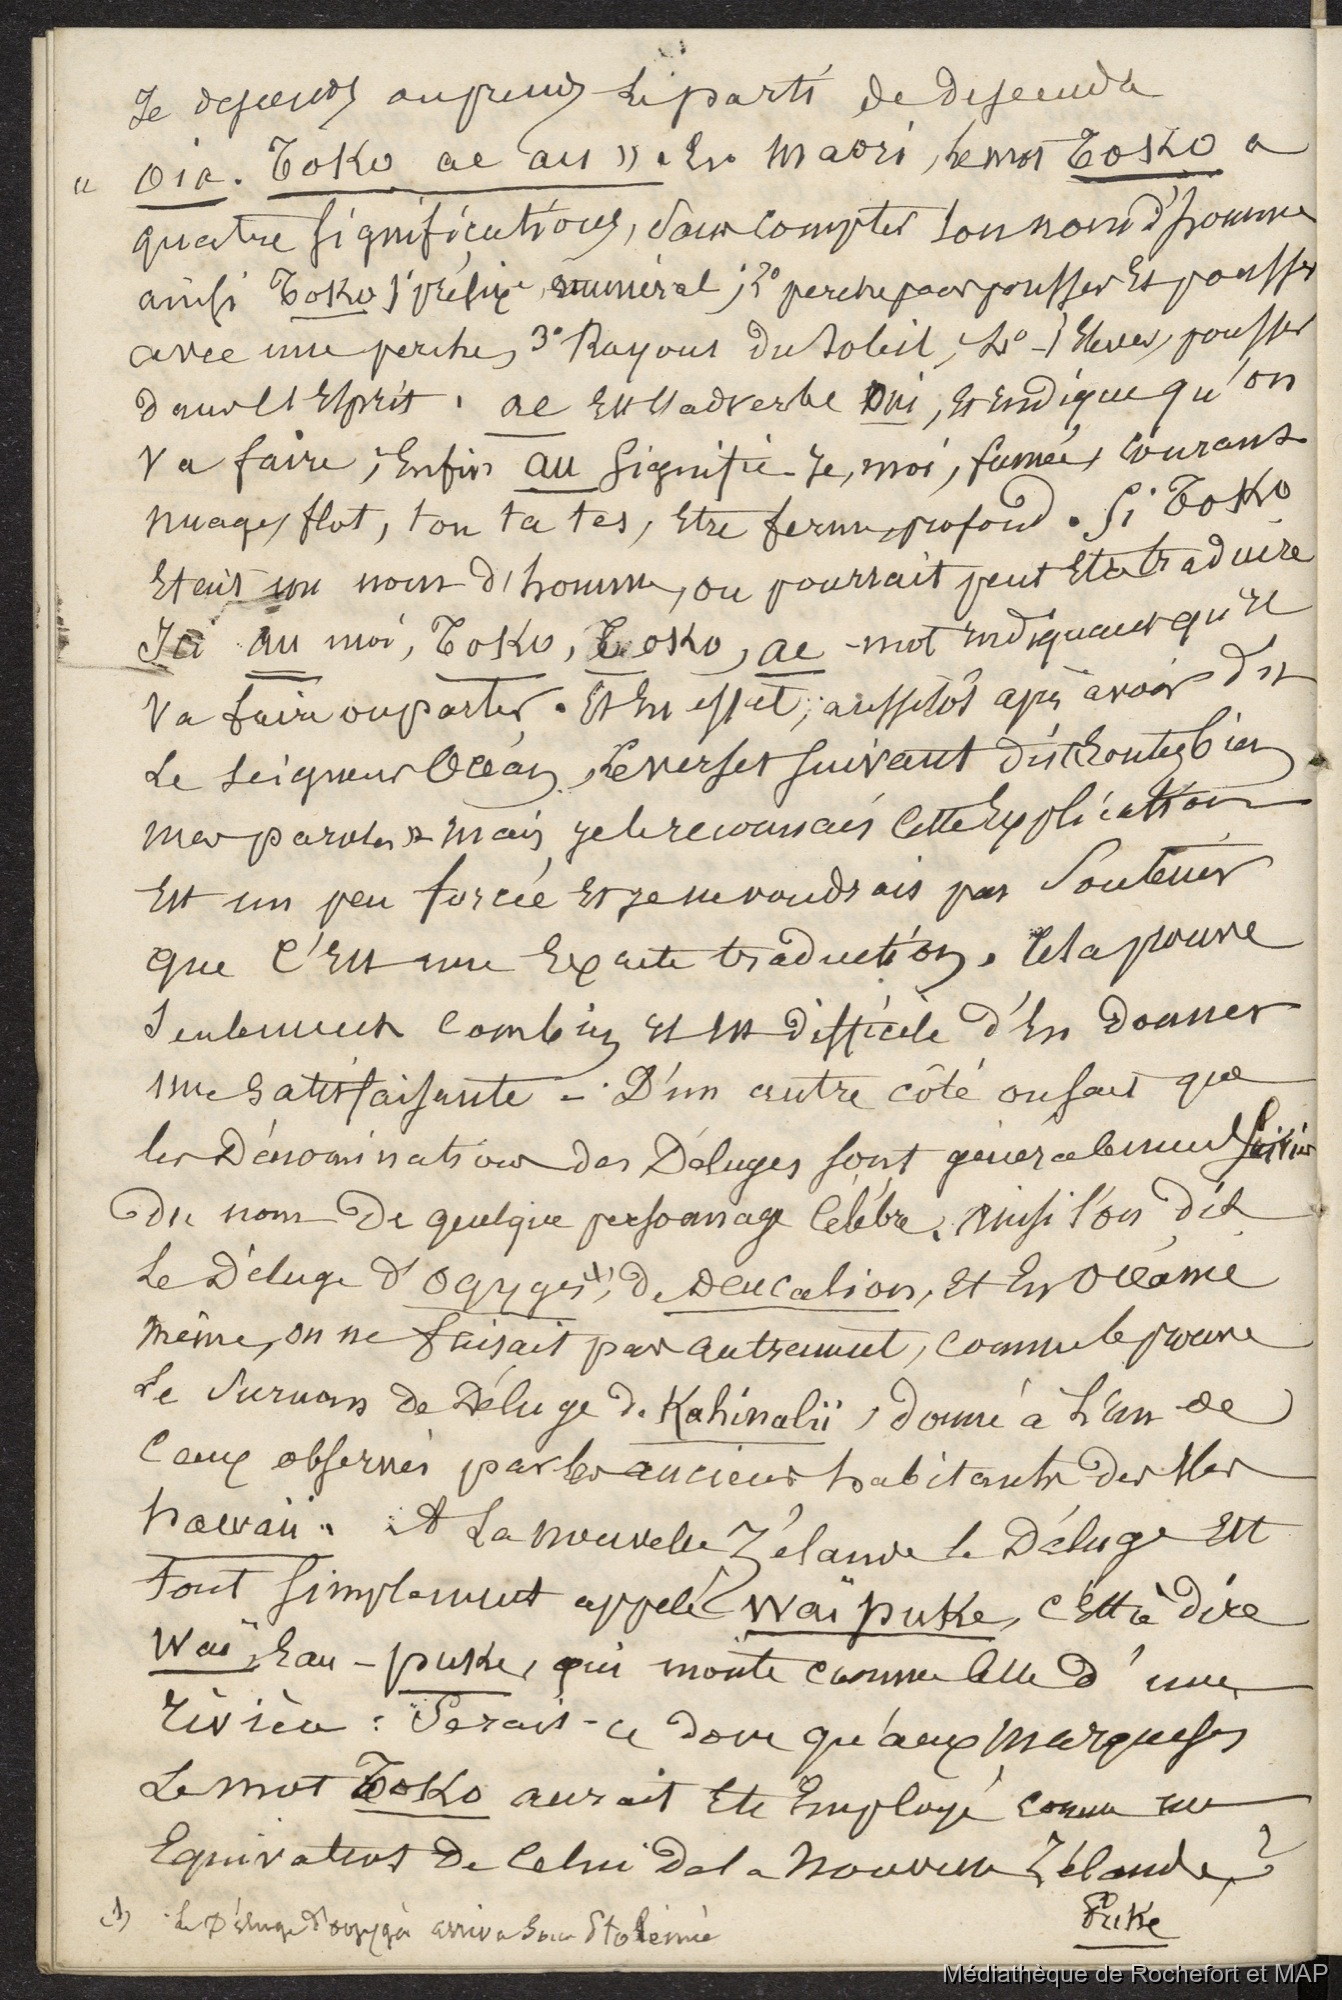 Je descends ou prends le parti de descendre
" Oia. Toko ae au ». En Maori, le mot Toko a
quatre significations, sans compter son nom d'homme
ainsi Toko, préfixe numéral; 2° perche pour pousser et pousser
avec une perche, 3° Rayons du soleil, 4° s'Elever, pousser
dans l'Esprit. ae Est l'adverbe oui, et indique qu'on
va faire; Enfin au signifie Je, moi, fumée, courant
nuage, flot, ton ta tes, Etre ferme, profond. Si Toko
Etait un nom d'homme, on pourrait peut Etre traduire
Ici au moi, Toko, Toko, ae mot indiquant qu'il
va faire ou parler. Et En effet, aussitôt après avoir dit
Le seigneur Océan, le verset suivant dit Ecoutez bien
mes paroles » mais je le reconnais cette Explication
Est un peu forcée Et je ne voudrais pas Soutenir
que c'Est une Exacte traduction. Cela prouve
seulement combien il Est difficile d'En donner
une satisfaisante - D'un autre côté on sait que
les Dénominations des Déluges sont généralement suivies
du nom De quelque personnage célèbre. Ainsi l'on dit
Le Déluge d'Ogygès (1), de Deucalion, Et En Océanie
même, on ne faisait pas autrement, comme le prouve
Le surnom de Déluge de Kahinalii, donné à l'un de
ceux observés par les anciens habitants des Iles
hawaii. A La nouvelle Zélande le Déluge Est
tout simplement appelé Waï puke, c'Est à dire
Waï, Eau - puke, qui monte comme celle d'une
rivière: Serait-ce donc qu'aux Marquises
Le mot Toko aurait Eté Employé comme un
Equivalent de celui de la Nouvelle Zélande,?
Puke
(1) Le Déluge d'Ogygès arriva sous Ptolémée
Médiathèque de Rochefort et MAP